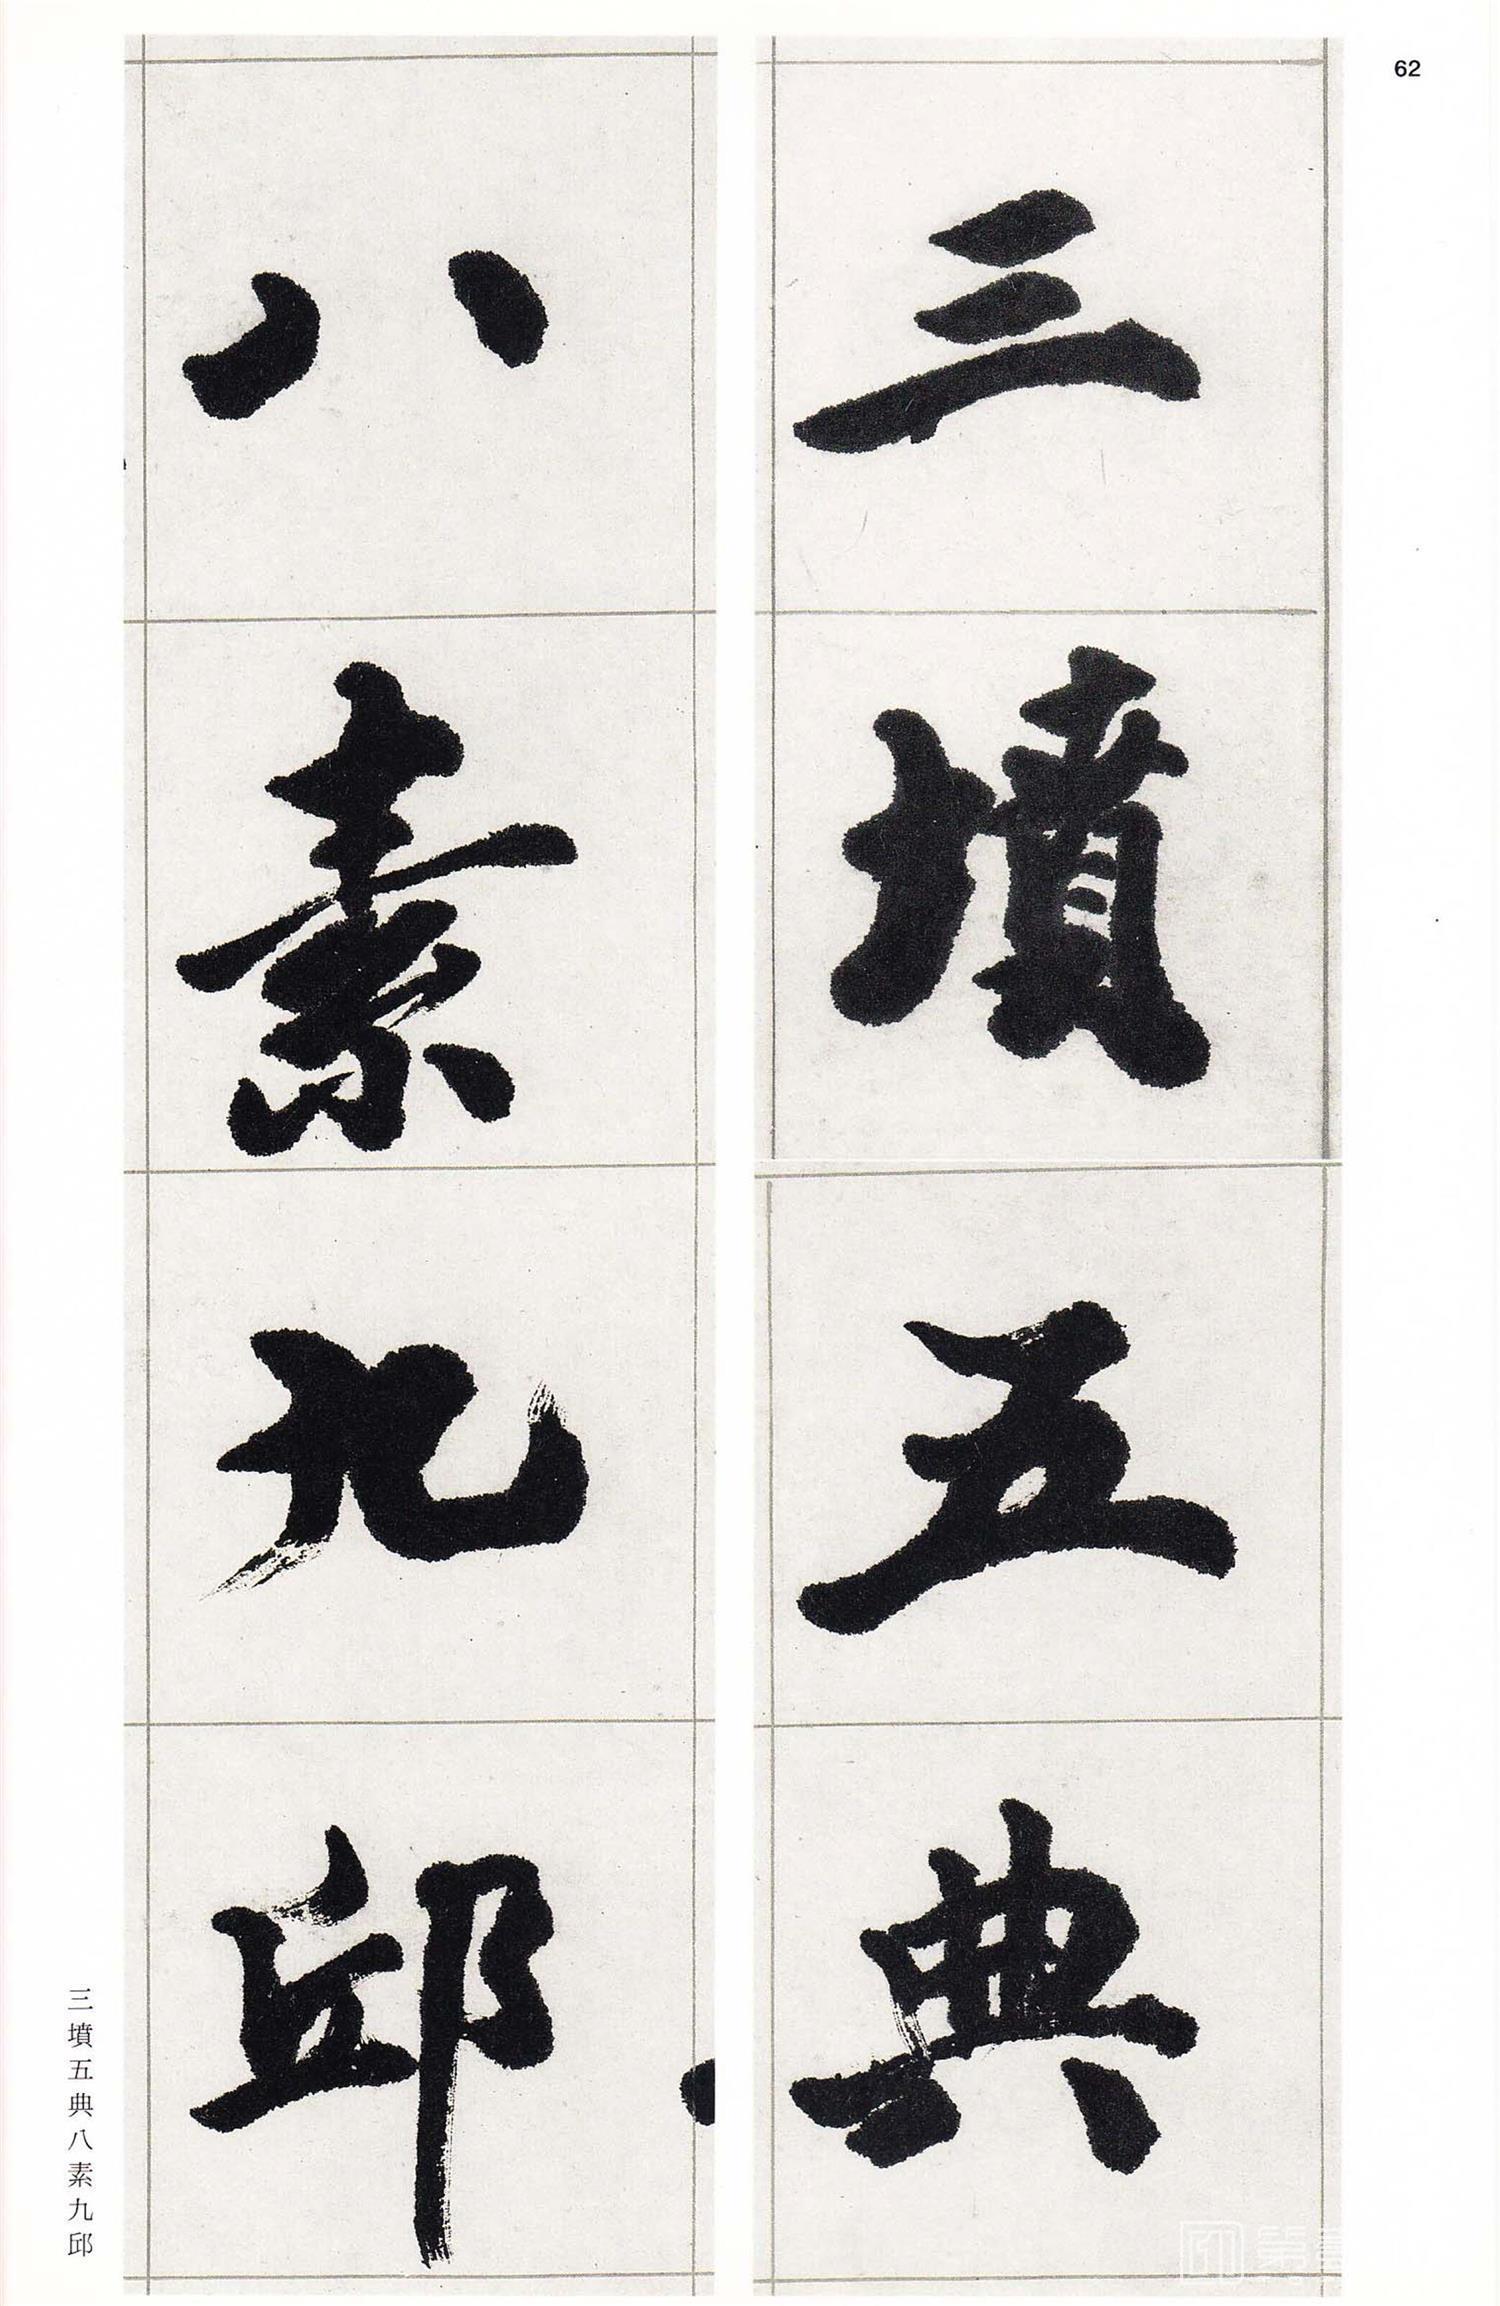 62
三墳五典
八素九邱
三墳五典八素九邱